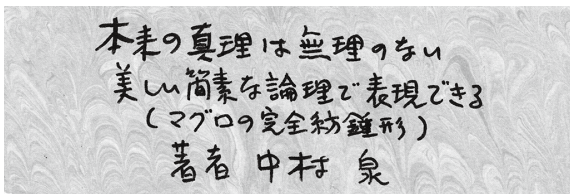 本来の真理は無理のない
美しい簡素な論理で表現できる
(マグロの完全紡錘形)
著者 中村 泉